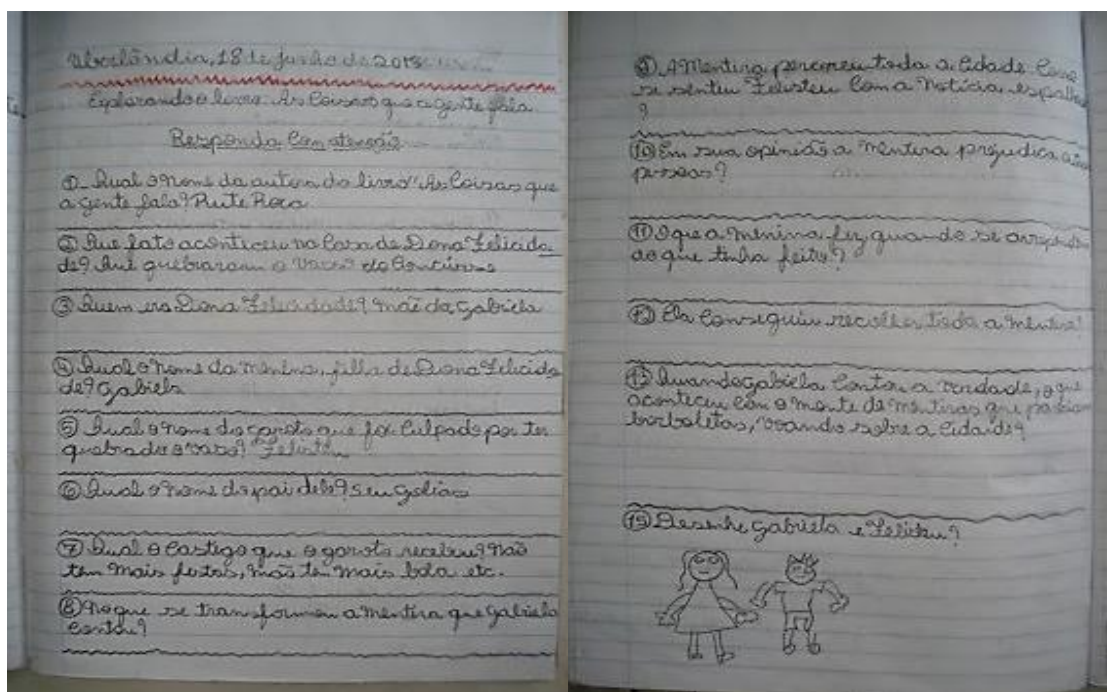 Uberlândia, 18 de junho de 2018
Explorando o livro: As Coisas que a gente fala
Responda Com atenção
① Qual o nome da autora do livro "As Coisas que
a gente fala? Rute Roca
② Que fato aconteceu na Casa de Dona Felicida
de? Que quebraram o vaso do
③ Quem era Dona Felicidade? mãe da gabriela
④ Qual o nome da menina, filha de Dona Felicida
de? gabriela
⑤ Qual o nome do garoto que foi Culpado por ter
quebrado o vaso? Felisteu
⑥ Qual o nome do pai dele? seu golias
⑦ Qual o Castigo que o garoto recebeu? não
tem mais festas, não tem mais bola etc.
⑧ No que se transformou a mentira que gabriela
Contou?
⑨ A Mentira percorreu toda a Cidade. Como
se sentiu Felisteu Com a Notícia espalha
?
⑩ Em sua opinião a mentira prejudica as
pessoas?
⑪ O que a menina fez quando se
do que tinha feito?
⑫ Ela Conseguiu recolher toda a mentira?
⑬ Quando gabriela Contou a verdade, o que
aconteceu Com o monte de mentiras que
borboletas, voando sobre a Cidade?
Desenhe gabriela e Felisteu?